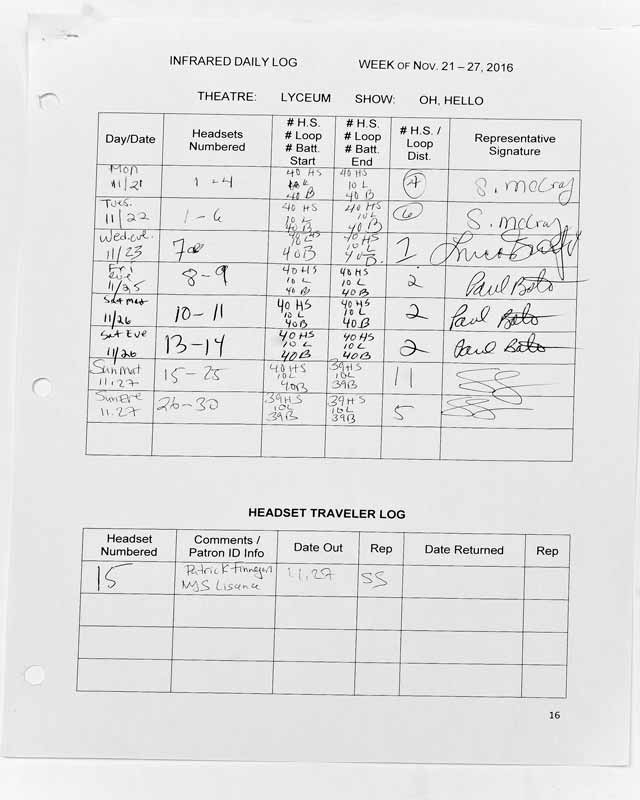 INFRARED DAILY LOG WEEK OF NOV. 21 – 27, 2016
THEATRE: LYCEUM SHOW: OH, HELLO
Day/Date Headsets Numbered # H.S. # Loop # Batt. Start # H.S. # Loop # Batt. End # H.S. / Loop Dist. Representative Signature
Mon 11/21 1-4 40 HS 10 L 40 B 40 HS 10 L 40 B 4 S. McCray
Tues. 11/22 1-6 40 HS 10 L 40 B 40 HS 10 L 40 B 6 S. McCray
Wed.eve. 11/23 7 40 HS 10 L 40 B 40 HS 10 L 40 B. 1
Fri eve 11/25 8-9 40 HS 10 L 40 B 40 HS 10 L 40 B 2 Paul Bato
Sat Mat 11/26 10-11 40 HS 10 L 40B 40 HS 10 L 40B 2 Paul Bato
Sat Eve 11/26 13-14 40 HS 10 L 40B 40 HS 10 L 40B 2 Paul Bato
Sun Mat 11.27 15-25 40 HS 10L 40B 39HS 10L 39B 11 SS
Sun Eve 11.27 26-30 39HS 10L 39B 39HS 10L 39B 5 SS
HEADSET TRAVELER LOG
Headset Numbered Comments / Patron ID Info Date Out Rep Date Returned Rep
15 Patrick Finnegan NJS Lisance 11.27 SS
16